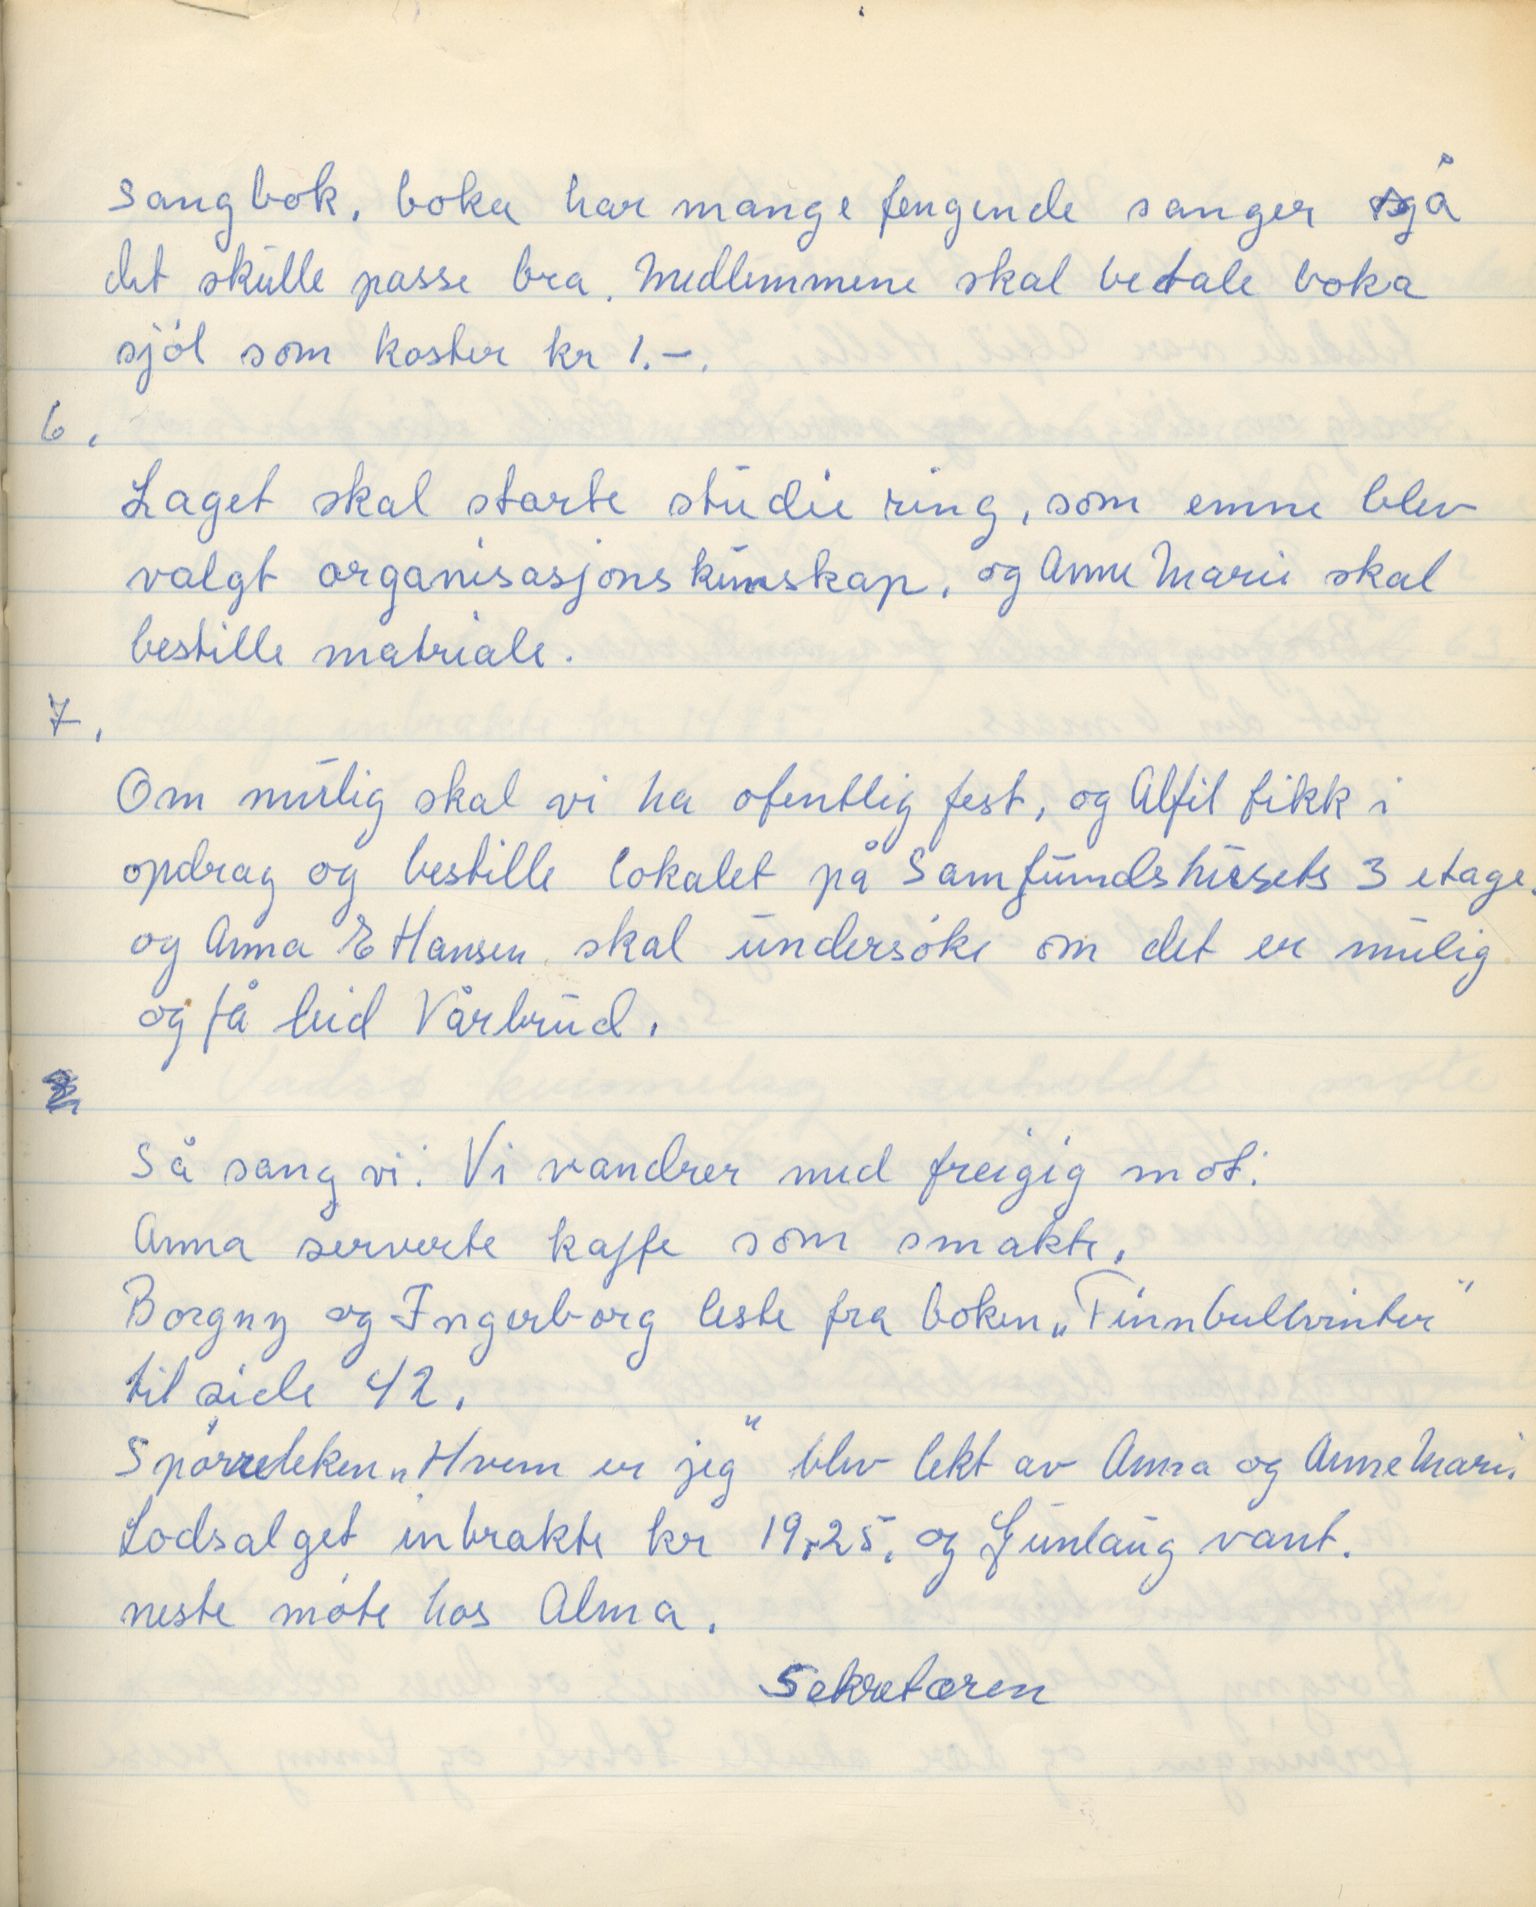 sangbok, boka har mange fengende sanger så
det skulle passe bra. Medlemmene skal betale boka
sjøl som koster kr 1.-.
6.
Laget skal starte studie ring, som emne blev
valgt organisasjonskunskap, og Anne Marie skal
bestille matriale.
7.
Om mulig skal vi ha ofentlig fest, og Alfil fikk i
opdrag og bestille lokalet på Samfundshusets 3 etage.
og Anna E Hansen skal undersøke om det er mulig
og få leid Vårbrud.
Så sang vi: Vi vandrer med freigig mot.
Anna serverte kaffe som smakte.
Borgny og Ingerborg leste fra boken „Finnbulvinter"
til side 42.
Spørreleken „Hvem er jeg" blev lekt av Anna og Anne Mari.
Lodsalget inbrakte kr 19,25. og Gunlaug vant.
neste møte hos Alma.
Sekretæren